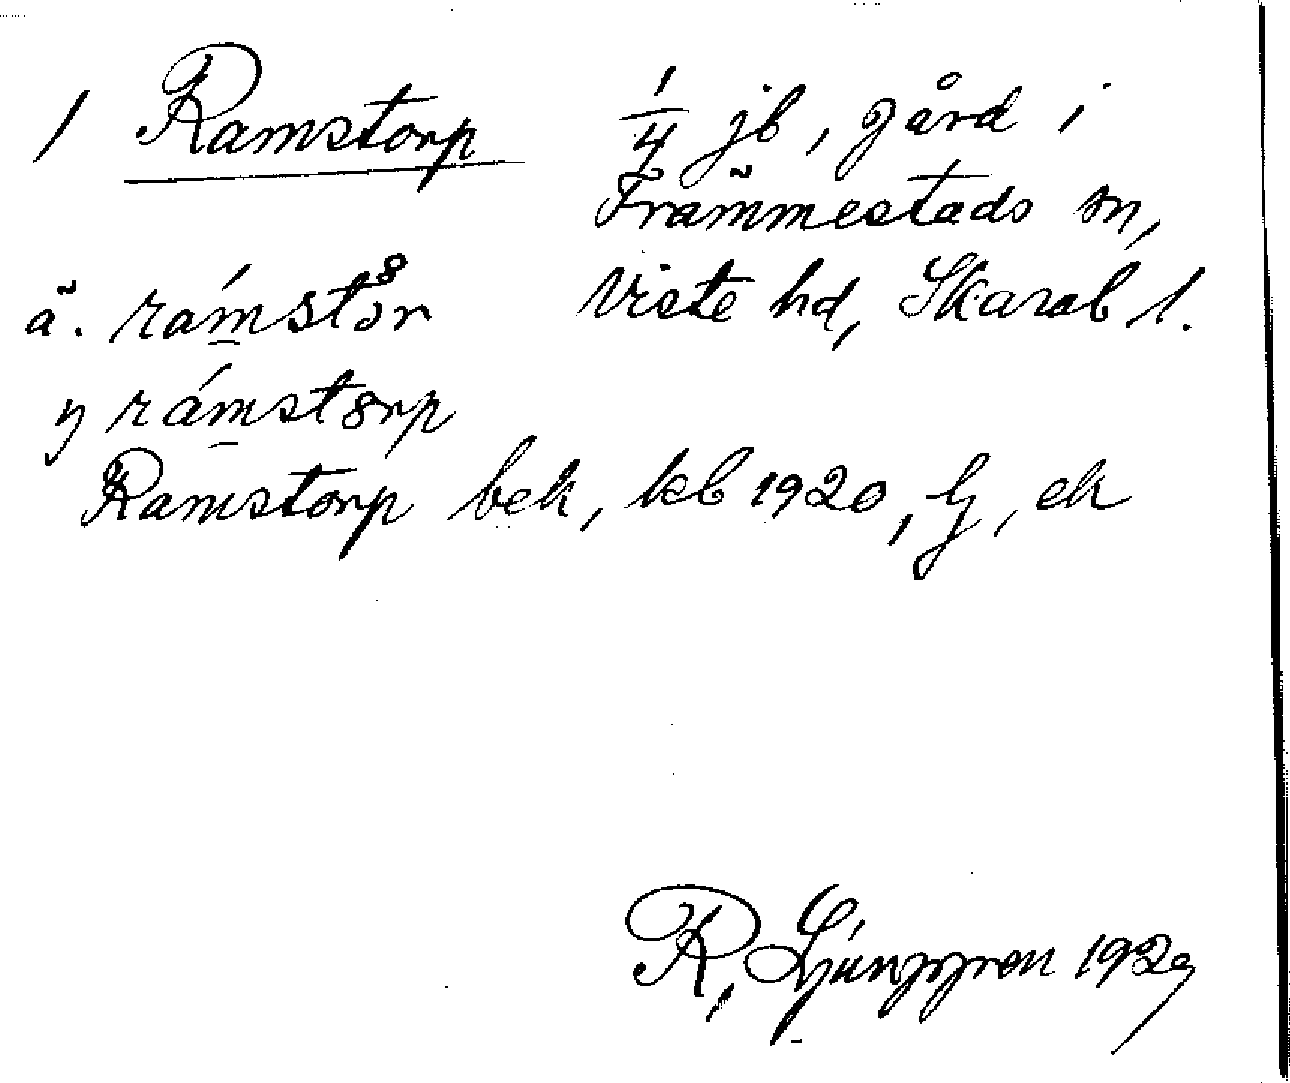 1 Ramstorp
1/4 jb, gård i
Främmestads sn,
Viste hd, Skarab l.
ä. rámstór
y rámstorp
Ramstorp bek, kb 1920, Gj, ek
R, Ljunggren 1929